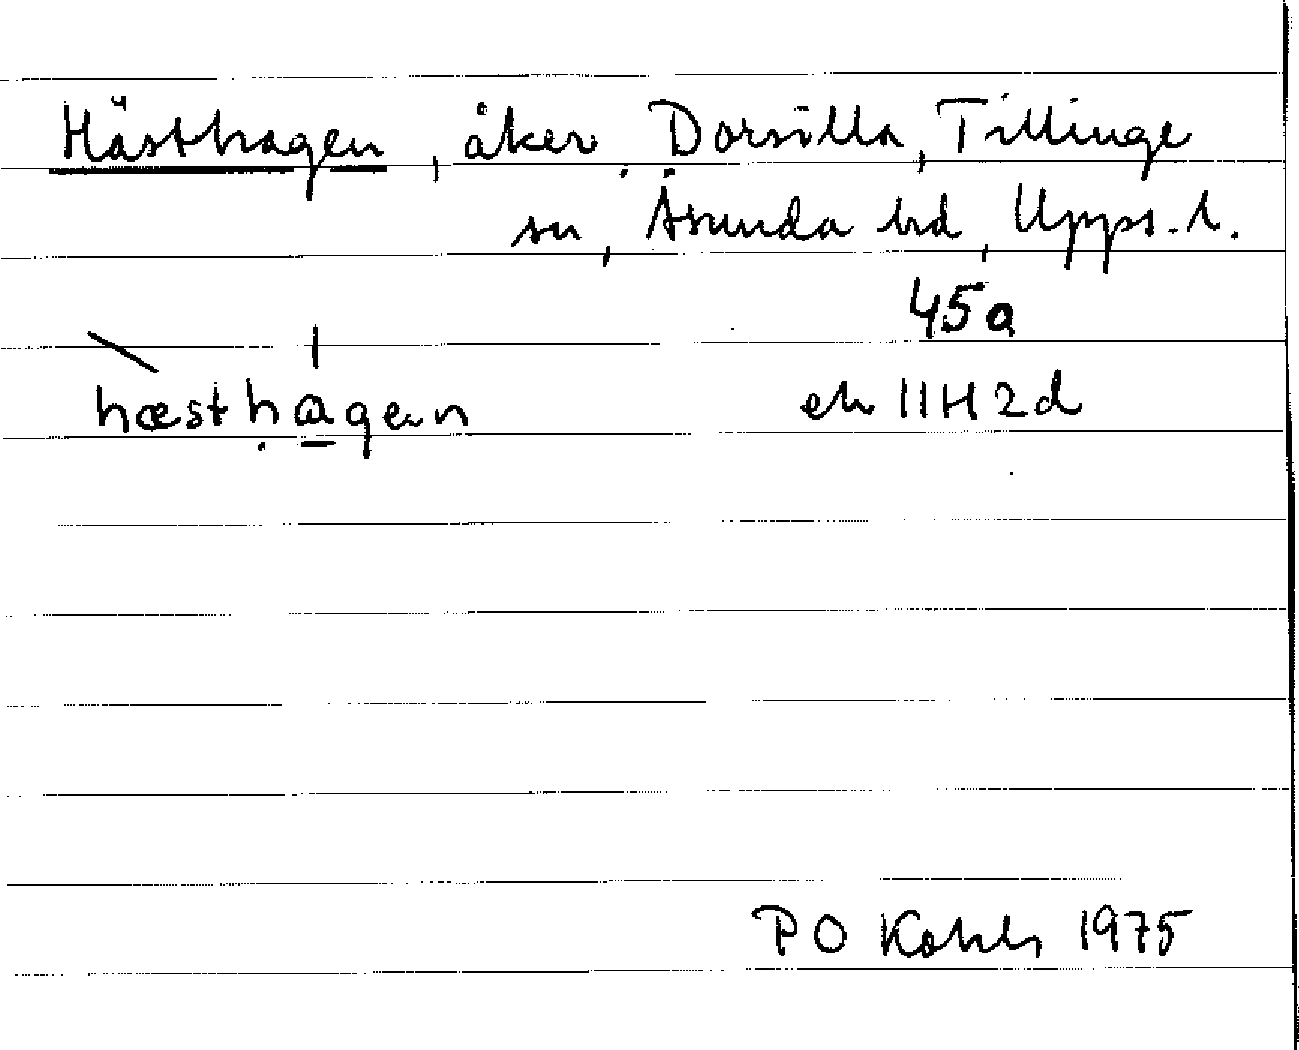 Hästhagen, åker, Dorsilla, Tillinge
sn, Åsunda hd, Upps. l.
45a
hæsthagen ek 11H2d
P O Kohls 1975